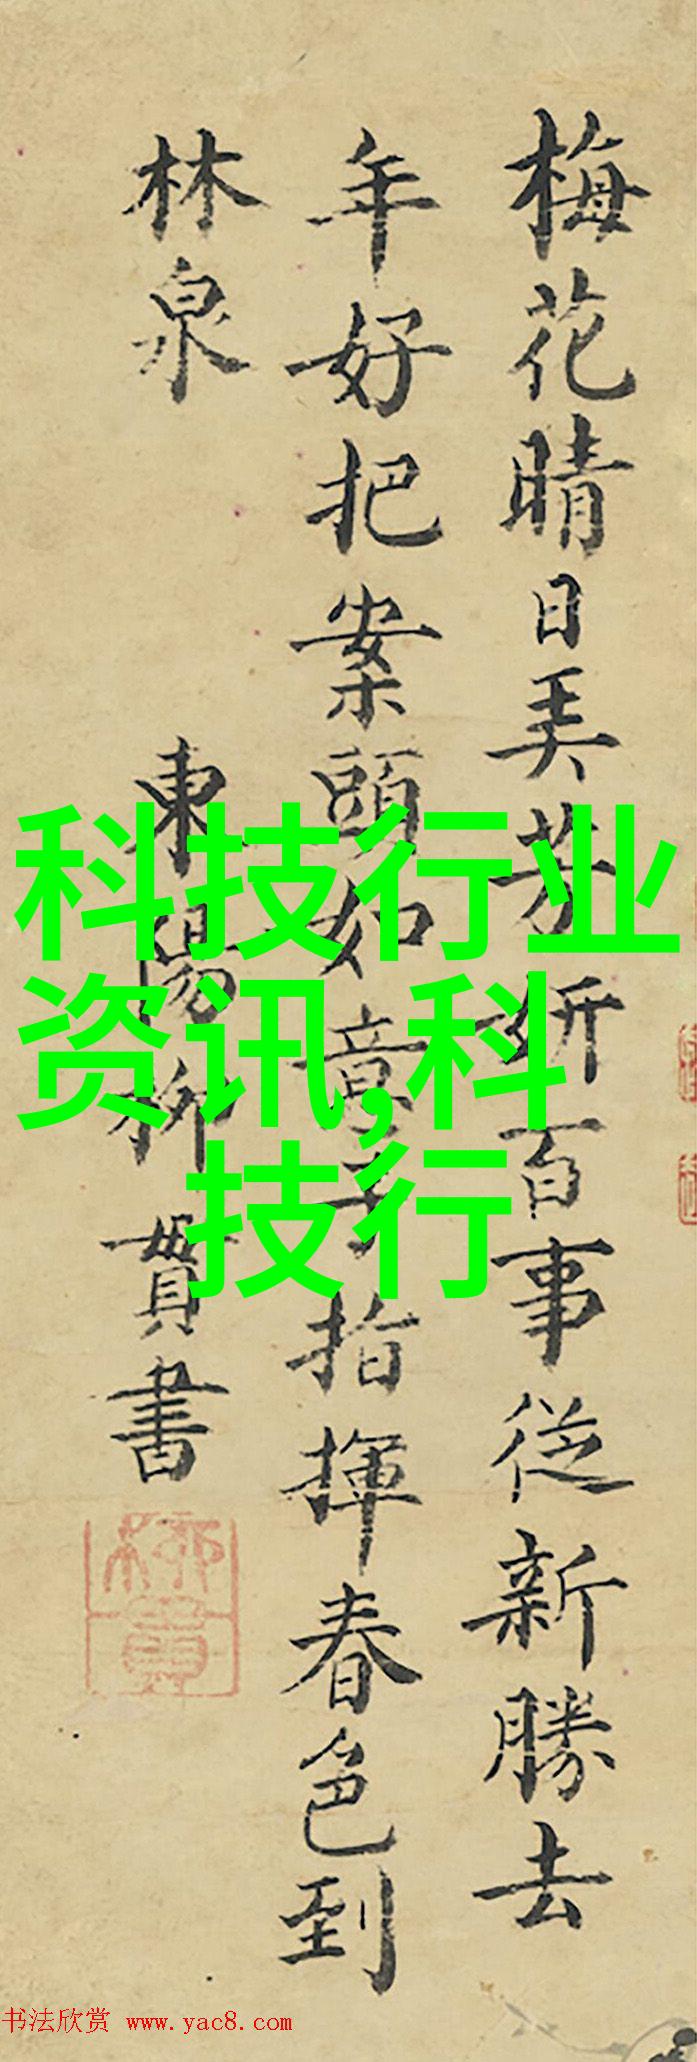 梅花晴日美芳妍百事從新勝去
年好把案頭如意子指揮春色到
林泉 東陽柳貫書
柳貫
科技行业
资讯,科
技行
书法欣赏 www.yac8.com